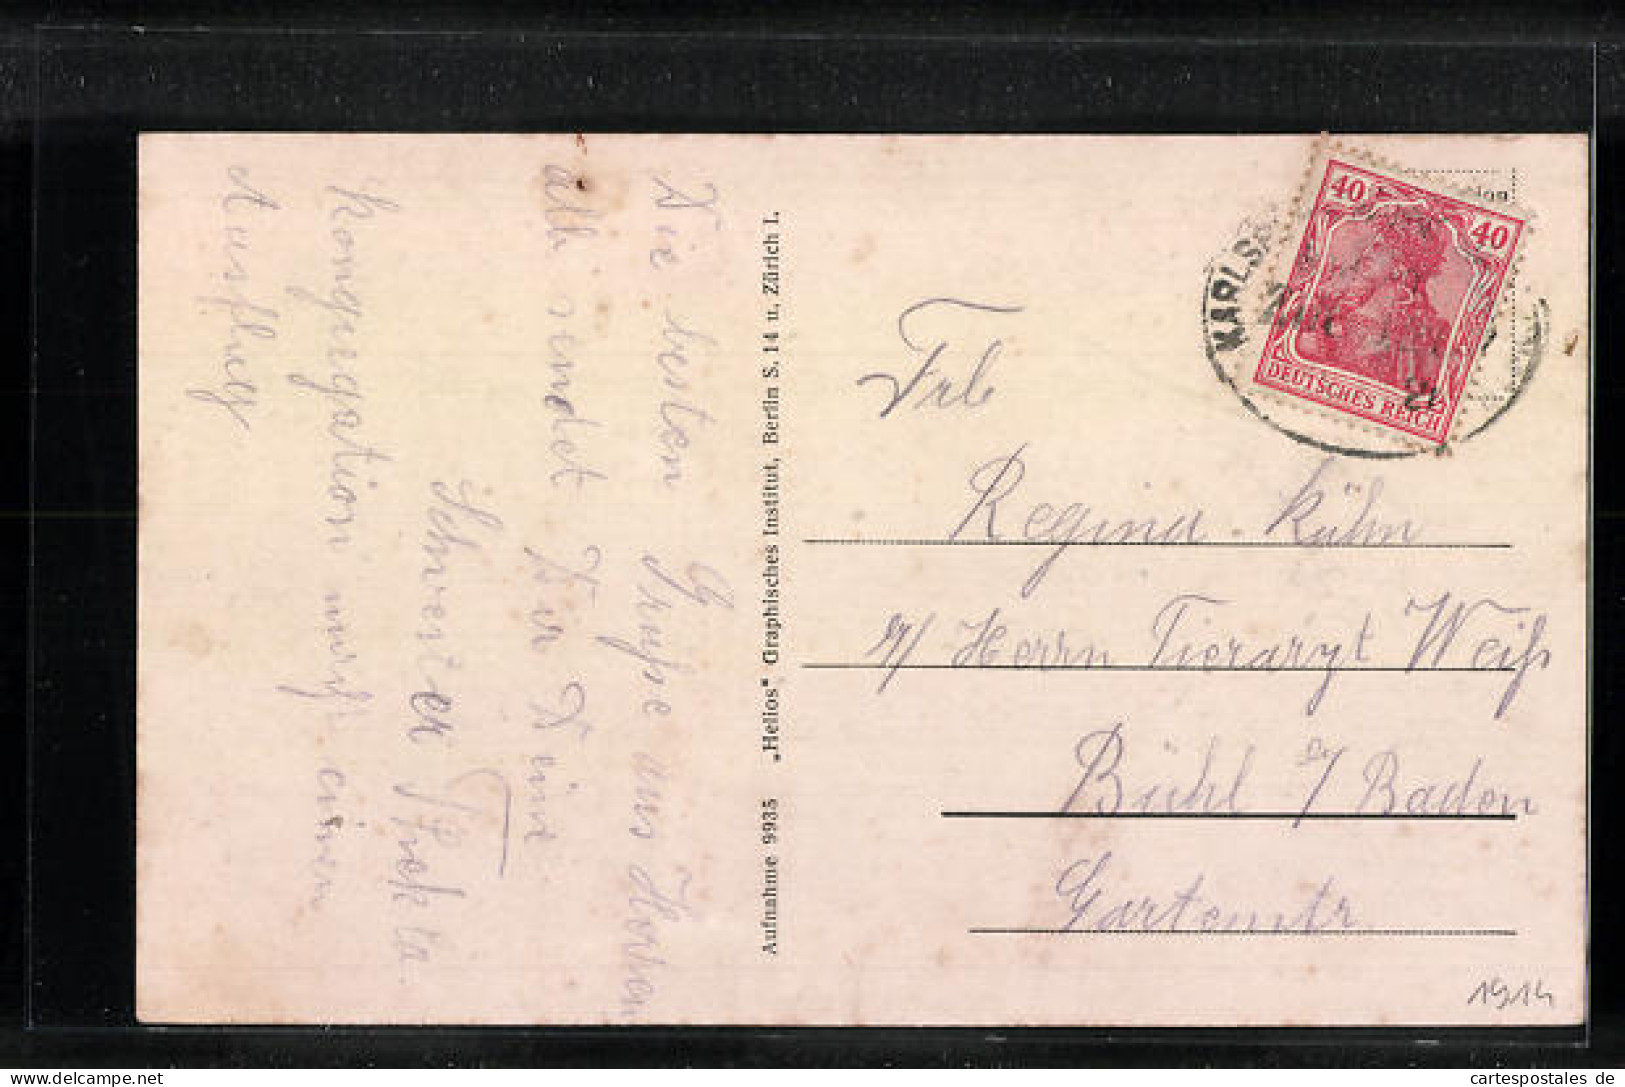 Die besten Grüße aus Horben
all sendet Dir Deine
Schwester Thekla.
Kongregation macht einen
Ausflug
Aufnahme 9935 „Helios“ Graphisches Institut, Berlin S. 14 u. Zürich I.
KARLS
40 40
DEUTSCHES REICH
21
Frl
Regina Kühn
Herrn Tierarzt Weiß
Bühl i/ Baden
Gartenstr
1914
delcampe.net
cartespostales de